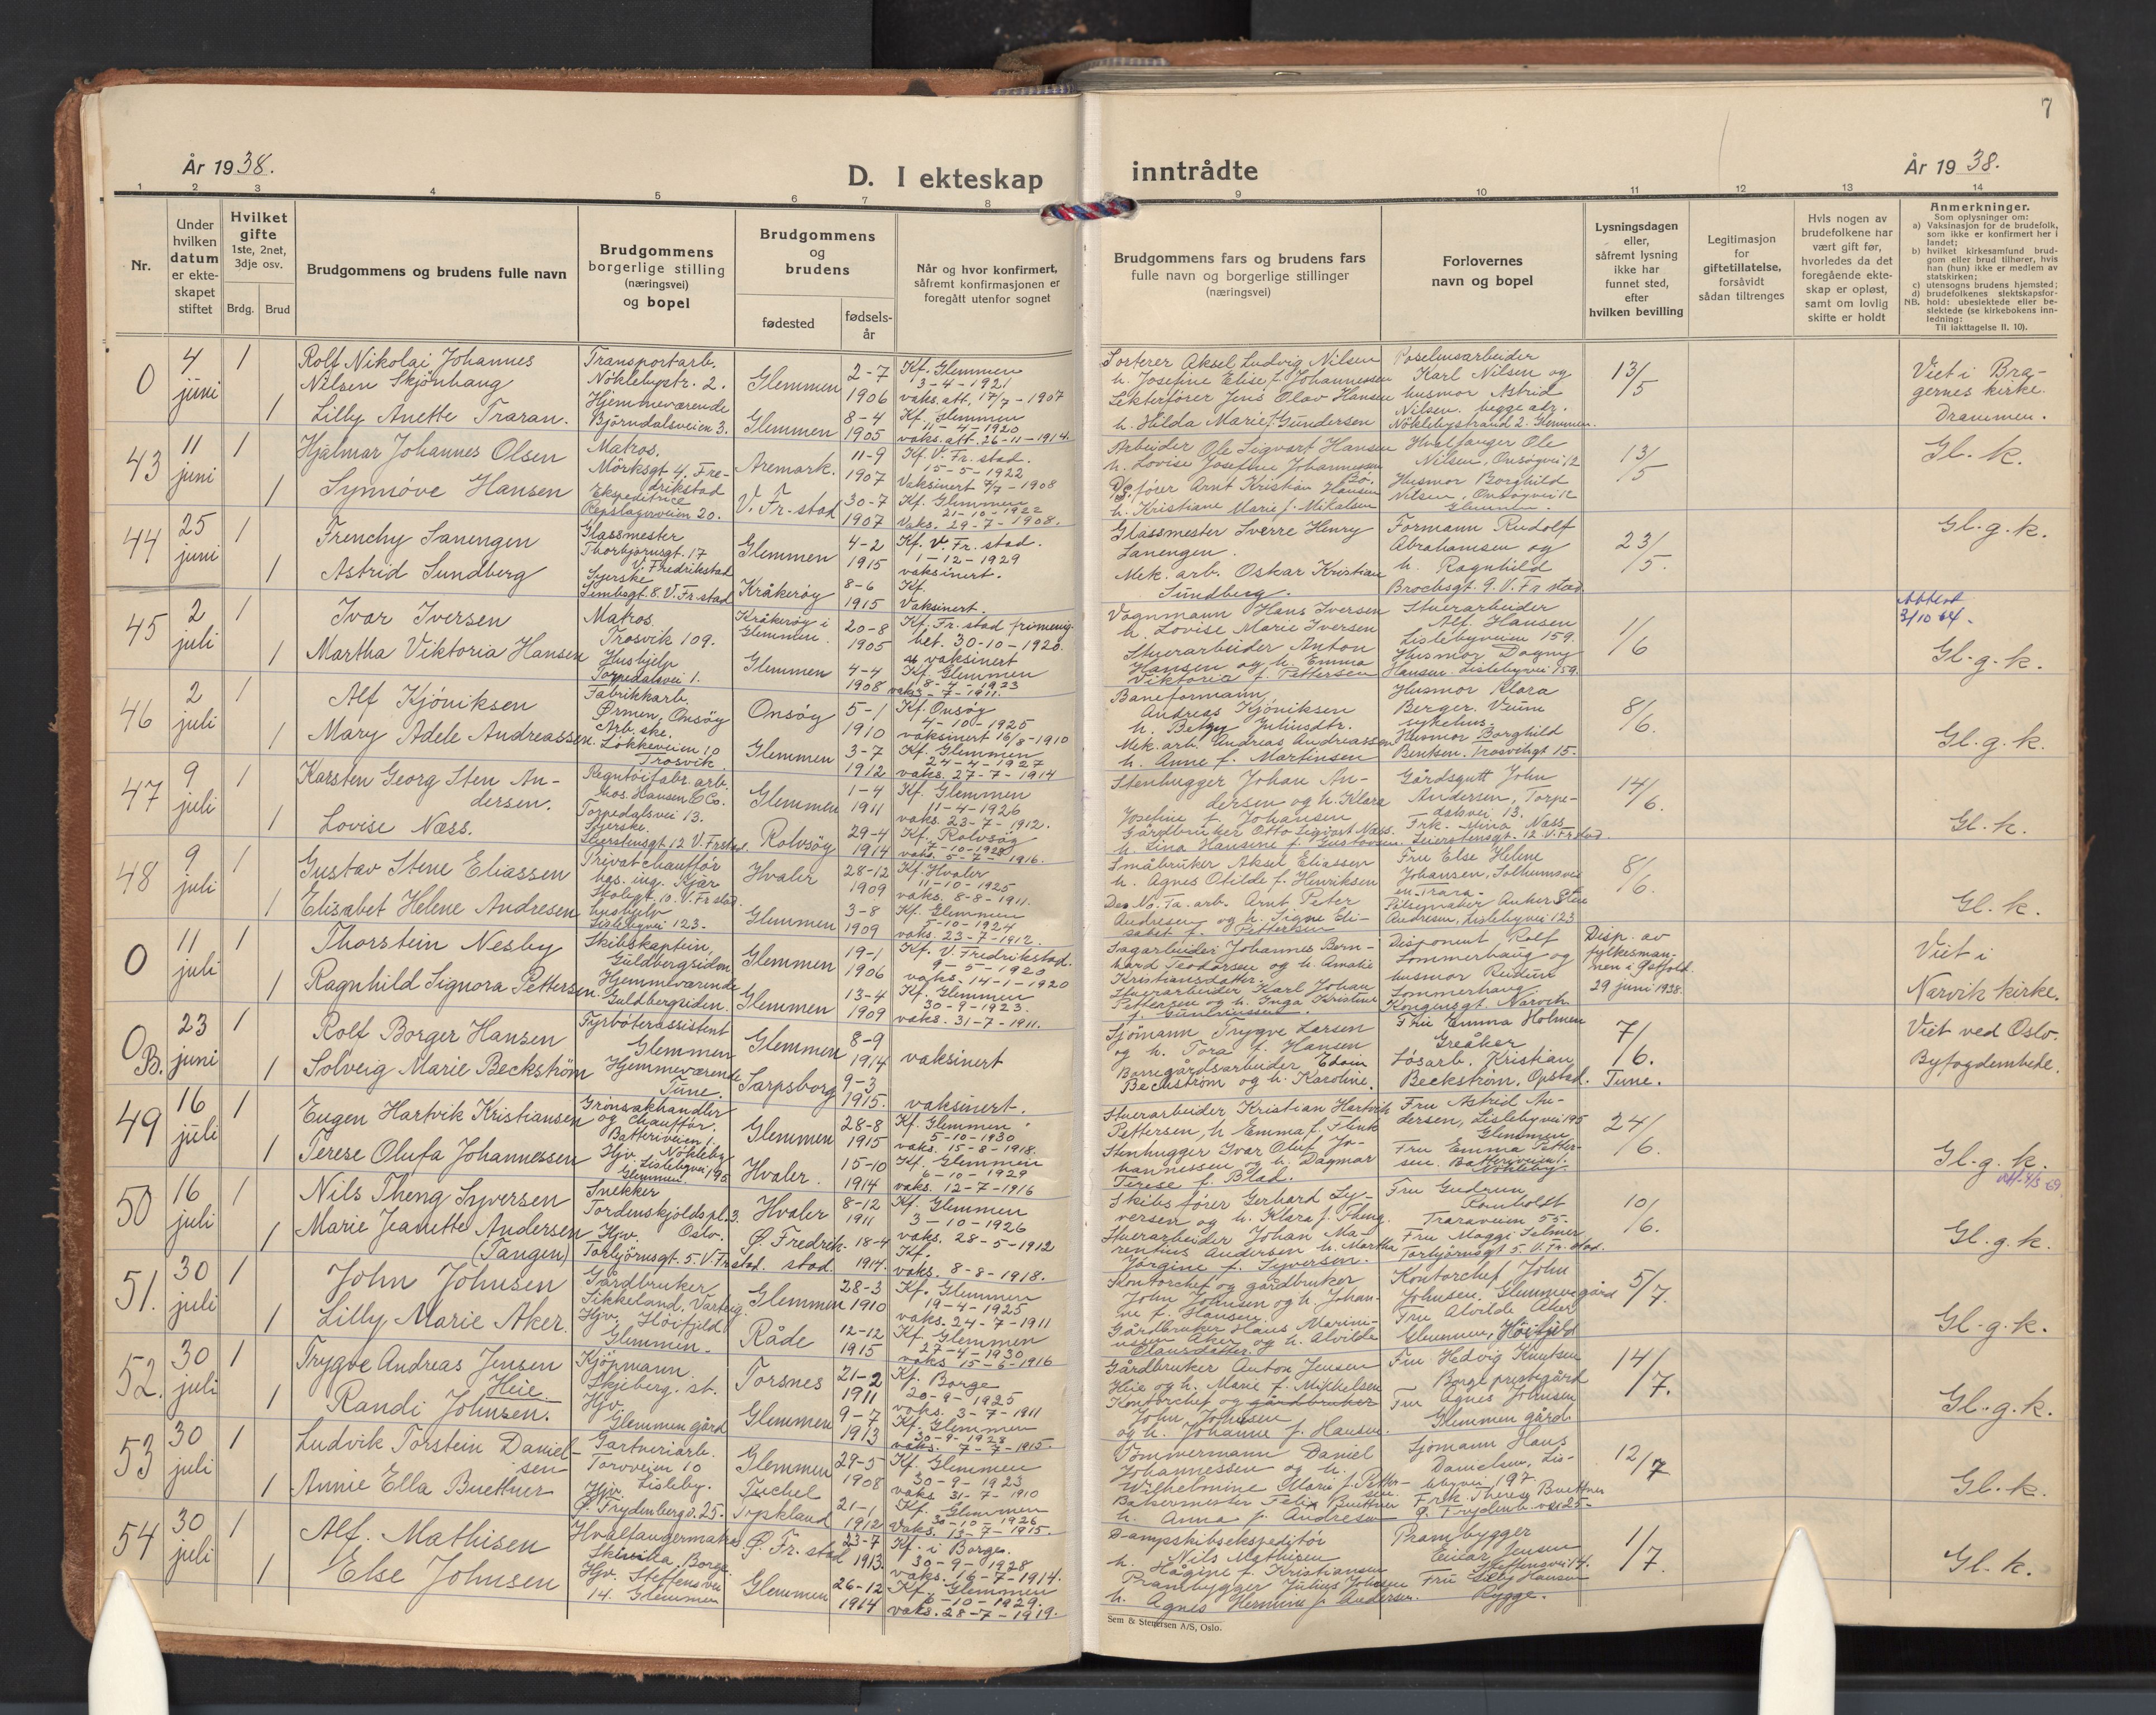 7
År 1938.
D. I ekteskap
inntrådte
År 1938.
1 2 3 4 5 6 7 8 9 10 11 12 13 14
Nr.
Under hvilken datum er ekteskapet stiftet
Hvilket gifte 1ste, 2net, 3dje osv.
Brdg. Brud
Brudgommens og brudens fulle navn
Brudgommens borgerlige stilling (næringsvei) og bopel
Brudgommens og brudens
fødested
fødselsår
Når og hvor konfirmert, såfremt konfirmasjonen er foregått utenfor sognet
Brudgommens fars og brudens fars fulle navn og borgerlige stillinger (næringsvei)
Forlovernes navn og bopel
Lysningsdagen eller, såfremt lysning ikke har funnet sted, efter hvilken bevilling
Legitimasjon for giftetillatelse, forsåvidt sådan tiltrenges
Hvis nogen av brudefolkene har vært gift før, hvorledes da det foregående ekteskap er opløst, samt om lovlig skifte er holdt
Anmerkninger.
Som oplysninger om:
a) Vaksinasjon for de brudefolk, som ikke er konfirmert her i landet;
b) hvilket kirkesamfund brudgom eller brud tilhører, hvis han (hun) ikke er medlem av statskirken;
c) utensogns brudens hjemsted;
d) brudefolkenes slektskapsforhold: ubeslektede eller beslektede (se kirkebokens innledning:
NB.
Til iakttagelse II. 10).
0
4 juni
1
Rolf Nikolai Johannes
Nilsen Skjønhaug
Transportarb.
Nöklebystr. 2.
Glemmen
2-7
1906
Kf. Glemmen
3-4-1921
vaks. att. 17/7-1907
Sorterer Aksel Ludvig Nilsen
h. Josefine Elise f. Johannessen
Karl Nilsen og
husmor Astrid
Nilsen. begge adr.
Nöklebystrand 2. Glemmen.
13/5
Viet i Bragernes kirke
Drammen.
1
Lilly Anette Traran.
Hjemmeværende
Björndalsveien 3.
Glemmen
8-4
1905
Kf. Glemmen
11-4-1920
vaks. att. 26-11-1914.
Jens Olav Hansen
h. Hilda Marie f. Gundersen
43
11 juni
1
Hjalmar Johannes Olsen
Matros.
Mörksgt 4, Fredrikstad
Aremark.
11-9
1907
Kf. V. Fr. stad.
15-5-1922
Vaksinert 7/7-1908
Arbeider Ole Sigvart Hansen
h. Lovise Josefine Johannessen
Hvalfanger Ole
Nilsen, Onsøyvei 12
13/5
Gl. k.
1
Synnöve Hansen
Ekspeditrice
Repslagerveien 20.
V. Fr-stad
30-7
1907
Kf. Glemmen
21-10-1922
Vaks. 29-7-1908.
fører Arnt Kristian Hansen
h. Kristiane Marie f. Mikalsen
Husmor Borghild
Nilsen, Onsøyvei 12
Glemmen.
44
25 juni
1
Frenchy Sanengen
Glassmester
Thorbjørnsgt. 17
V. Fredrikstad
Glemmen
4-2
1915
Kf. V. Fr. stad.
1-12-1929
vaksinert.
Glassmester Sverre Henry
Sanengen.
Formann Rudolf
Abrahamsen og
h. Ragnhild
Brochsgt. 9. V. Fr stad
23/5.
Gl. g. k.
1
Astrid Sundberg
Syerske
Simbsgt. 8. V. Fr. stad
Kråkerøy
8-6
1915
Kf.
Vaksinert.
Mek. arb. Oskar Kristian
Sundberg.
45
2 juli
1
Ivar Iversen
Matros.
Trosvik 109.
Kråkerøy i
Glemmen.
20-8
1905
Kf. Fr. stad frimenighet. 30-10-1920.
vaksinert
Vognmann Hans Iversen
h. Lovise Marie Iversen
Stuerarbeider
Alf. Hansen
Lislebyveien 159.
1/6
Attest
3/10 64.
Gl. g. k.
1
Martha Viktoria Hansen
Hushjelp
Torpedalsvei 1.
Glemmen
4-4
1908
Kf. Glemmen
8-4-1923
vaks - 7-1911.
Stuerarbeider Anton
Hansen og h. Emma
Viktoria f. Pettersen
Husmor Dagny
Hansen. Lislebyvei 159.
46
2 juli
1
Alf Kjöniksen
Fabrikkarb.
Ørmen, Onsøy
Onsøy
5-1
1910
Kf. Onsøy
4-10-1925
vaksinert 16/8-1910
Baneformann
Andreas Kjöniksen
h. Betzy Juliusdtr.
Husmor Klara
Berger. Veum
sykehus.
8/6.
Gl. g. k.
1
Mary Adele Andreassen
Arb.ske.
Løkkeveien 10
Trosvik.
Glemmen
3-7
1912
Kf. Glemmen
24-4-1927
vaks. 27-7-1914
Mek. arb. Andreas Andreassen
h. Anne f. Martinsen
Husmor Borghild
Bentsen. Trosvikgt 15.
47
9 juli
1
Karsten Georg Sten Andersen.
Regntöifabr. arb.
hos. Hansen & Co.
Torpedalsvei 13.
Glemmen
1-4
1911
Kf. Glemmen
11-4-1926
vaks. 23-7-1912.
Stenhugger Johan Andersen og h. Klara
Josefine f. Johansen
Gårdsgutt John
Andersen, Torpedalsvei 13.
14/6.
Gl. k.
1
Lovise Næss.
Syerske.
Leierstensgt 12 V. Frstad.
Rolvsøy
29-4
1914
Kf. Rolvsøy
7-10-1928
vaks. 5-7-1916.
Gårdbruker Otto Sigvart Næss.
h. Lina Hansine f. Gustavsen
Frk. Mina Næss
Leierstensgt. 12. V. Fr stad
48
9 juli
1
Gustav Stene Eliassen
Privatchauffør
hos. ing. Kjær
Skolegt. 10. V. Fr stad.
Hvaler
28-12
1909
Kf. Hvaler
11-10-1925
vaks. 8-8-1911.
Småbruker Aksel Eliassen
h. Agnes Otilde f. Henriksen
Fru Else Helene
Johansen, Solhumsveien Trara
8/6.
Gl. k.
1
Elisabet Helene Andresen
hushjelp
Lislebyvei 123.
Glemmen
3-8
1909
Kf. Glemmen
5-10-1924
vaks. 23-7-1912.
Den No. Fa. arb. Arnt Peter
Andresen og h. Signe Elisabet f. Pettersen
Pölsemaker Anker Stene
Andresen, Lislebyvei 123
0
11 juli
1
Thorstein Nesby
Skibskaptein,
Guldbergsiden
Glemmen
19-1
1906
Kf. V. Fredrikstad.
9-5-1920
vaks. 14-1-1920
Sagarbeider Johannes Bernhard Teodorsen og h. Amalie
Kristiansdatter.
Disponent Rolf
Sommerhaug og
husmor Reidun
Sommerhaug
Kongensgt Narvik
Disp. av
fylkesmannen i Østfold.
29 juni 1938.
Viet i
Narvik kirke.
1
Ragnhild Signora Pettersen
Hjemmeværende
Guldbergsiden.
Glemmen
13-4
1909
Kf. Glemmen
30-9-1923.
vaks. 31-7-1911.
Stuerarbeider Karl Johan
Pettersen og h. Inga Kristine
0
B.
23 juni
1
Rolf Borger Hansen
Fyrböterassistent
Glemmen
Glemmen
8-9
1914
vaksinert
Sjömann Trygve Larsen
og h. Tora f. Hansen
Fru Emma Holmen
Greåker
7/6.
Tune.
Viet ved Oslo.
Byfogdembede.
1
Solveig Marie Beckström
Hjemmeværende
Tune.
Sarpsborg
9-3
1915.
vaksinert.
Bomgårdsarbeider Edvin
Beckström og h. Karoline.
Løsarb. Kristian
Beckström, Opstad.
49
16 juli
1
Eugen Hartvik Kristiansen
Grönsakhandler
og chauffør.
Batteriveien 1.
Nökleby
Glemmen
28-8
1915
Kf. Glemmen
5-10-1930
vaks. 15-8-1918.
Stuerarbeider Kristian Hartvik
Pettersen, h Emma f. Flink
Fru Astrid Andersen, Lislebyvei 195
Glemmen
24/6.
Gl. g. k.
1
Terese Olufa Johannessen
Hjv.
Lislebyvei 195
Glemmen.
Hvaler.
15-10
1914
Kf. Glemmen
6-10-1929
vaks. 12-7-1916
Stenhugger Ivar Oluf Johannessen og h. Dagmar
Terese f. Blad.
Fru Emma Pettersen. Batteriveien 1.
Nökleby
50
16 juli
1
Nils Theng Syversen
Snekker
Tordenskjoldspl. 3.
Oslo.
Hvaler
8-12
1911
Kf. Glemmen
3-10-1926
vaks. 28-5-1912
Skibsfører Gerhard Syversen og h. Klara f. Theng.
Fru Gudrun
Romholdt
Traraveien 55.
10/6.
Gl. g. k.
1
Marie Jeanette Andersen
(Tangen)
Hjv.
Torbjörnsgt. 5. V. Fr stad.
Ø. Fredrikstad
18-4
1914.
Kf.
vaks. 8-8-1918.
Stuerarbeider Johan Marentius Andersen h. Martha
Jörgine f. Syversen.
Fru Maggi Selmer
Torbjörnsgt 5. V. Fr. stad.
51.
30 juli
1
John Johnsen
Gårdbruker
Tikkeland, Varteig
Glemmen
28-3
1910
Kf. Glemmen
19-4-1925
vaks. 24-7-1911
Kontorchef og gårdbruker
John Johnsen og h. Johanne f. Hansen
Kontorchef John
Johnsen, Glemmengård
5/7.
Gl. g. k.
1
Lilly Marie Aker.
Hjv. Höifjeld
Glemmen.
Råde
12-12
1915
Kf. Glemmen
27-4-1930
vaks 15-6-1916
Gårdbruker Hans Mariniussen Aker og h. Alvilde
Olausdatter.
Fru Alvilde Aker
Glemmen, Höifjeld
52.
30 juli
1
Trygve Andreas Jensen
Heie.
Kjöpmann.
Skjeberg. st.
Torsnes
21-2
1911
Kf. Borge
20-9-1925
vaks. 3-7-1911
Gårdbruker Anton Jensen
Heie og h. Marie f. Mikkelsen
Fru Hedvig Knutsen
Borge prestegård
14/7.
Gl. g. k.
1
Randi Johnsen.
Hjv.
Glemmen gård
Glemmen
9-7
1913
Kf. Glemmen
30-9-1928
vaks. 7-7-1915.
Kontorchef og gårdbruker
John Johnsen
og h. Johanne f. Hansen.
Fru Agnes Johnsen
Glemmen gård.
53
30 juli
1
Ludvik Torstein Danielsen
Gartneriarb.
Torvveien 10
Lisleby.
Glemmen
29-5
1908
Kf. Glemmen
30-9-1923
vaks 31-7-1910
Tömmermann Daniel
Johannessen og h.
Wilhelmine Marie f. Pettersen
Sjömann Hans
Danielsen, Lislebyvei 197.
12/7
Gl. k.
1
Annie Ella Buettner
Hjv.
Ø. Frydenberg v. 25.
Tuchel
Tyskland
21-1
1912
Kf. Glemmen
30-10-1926
vaks. 13-7-1915.
Bakermester Felix Buettner
h. Anna f. Andresen
Frk. Therese Buettner
Ø. Frydenb. vei 25.
54
30 juli
1
Alf. Mathisen
Hvalfangermatros
Borge.
Ø. Fr. stad
23-7
1913.
Kf. i Borge.
30-9-1928
vaks. 16-7-1914.
Dampskibsekspeditør
Nils Mathisen
h. Hågine f. Kristiansen
Prambygger
Einar Jensen
Steffensvei 14.
1/7.
Gl. k.
1
Else Johnsen
Hjv. Steffensvei
14. Glemmen
Glemmen
26-12
1914
Kf. Glemmen
6-10-1929.
vaks. 28-7-1919.
Prambygger Julius Johnsen
h. Agnes Hermine f. Andersen.
Fru Hansen
Rygge.
Sem & Stenersen A/S, Oslo.